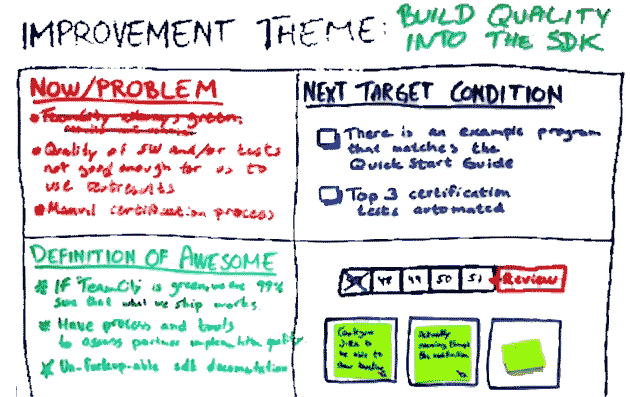 IMPROVEMENT THEME: BUILD QUALITY
INTO THE SDK
NOW/PROBLEM
TeamCity always green,
Quality of SW and/or tests
not good enough for us to
use testresults
Manual certification process
NEXT TARGET CONDITION
There is an example program
that matches the
Quick Start Guide
Top 3 certification
tests automated
DEFINITION OF AWESOME
IF TeamCity is green we are 99%
sure that what we ship works.
Have process and tools
to assess partner implementation quality
Un-fuckup-able sdk documentation
48 49 50 51 Review
Configure
to
be able to
Actually
running through
the certification